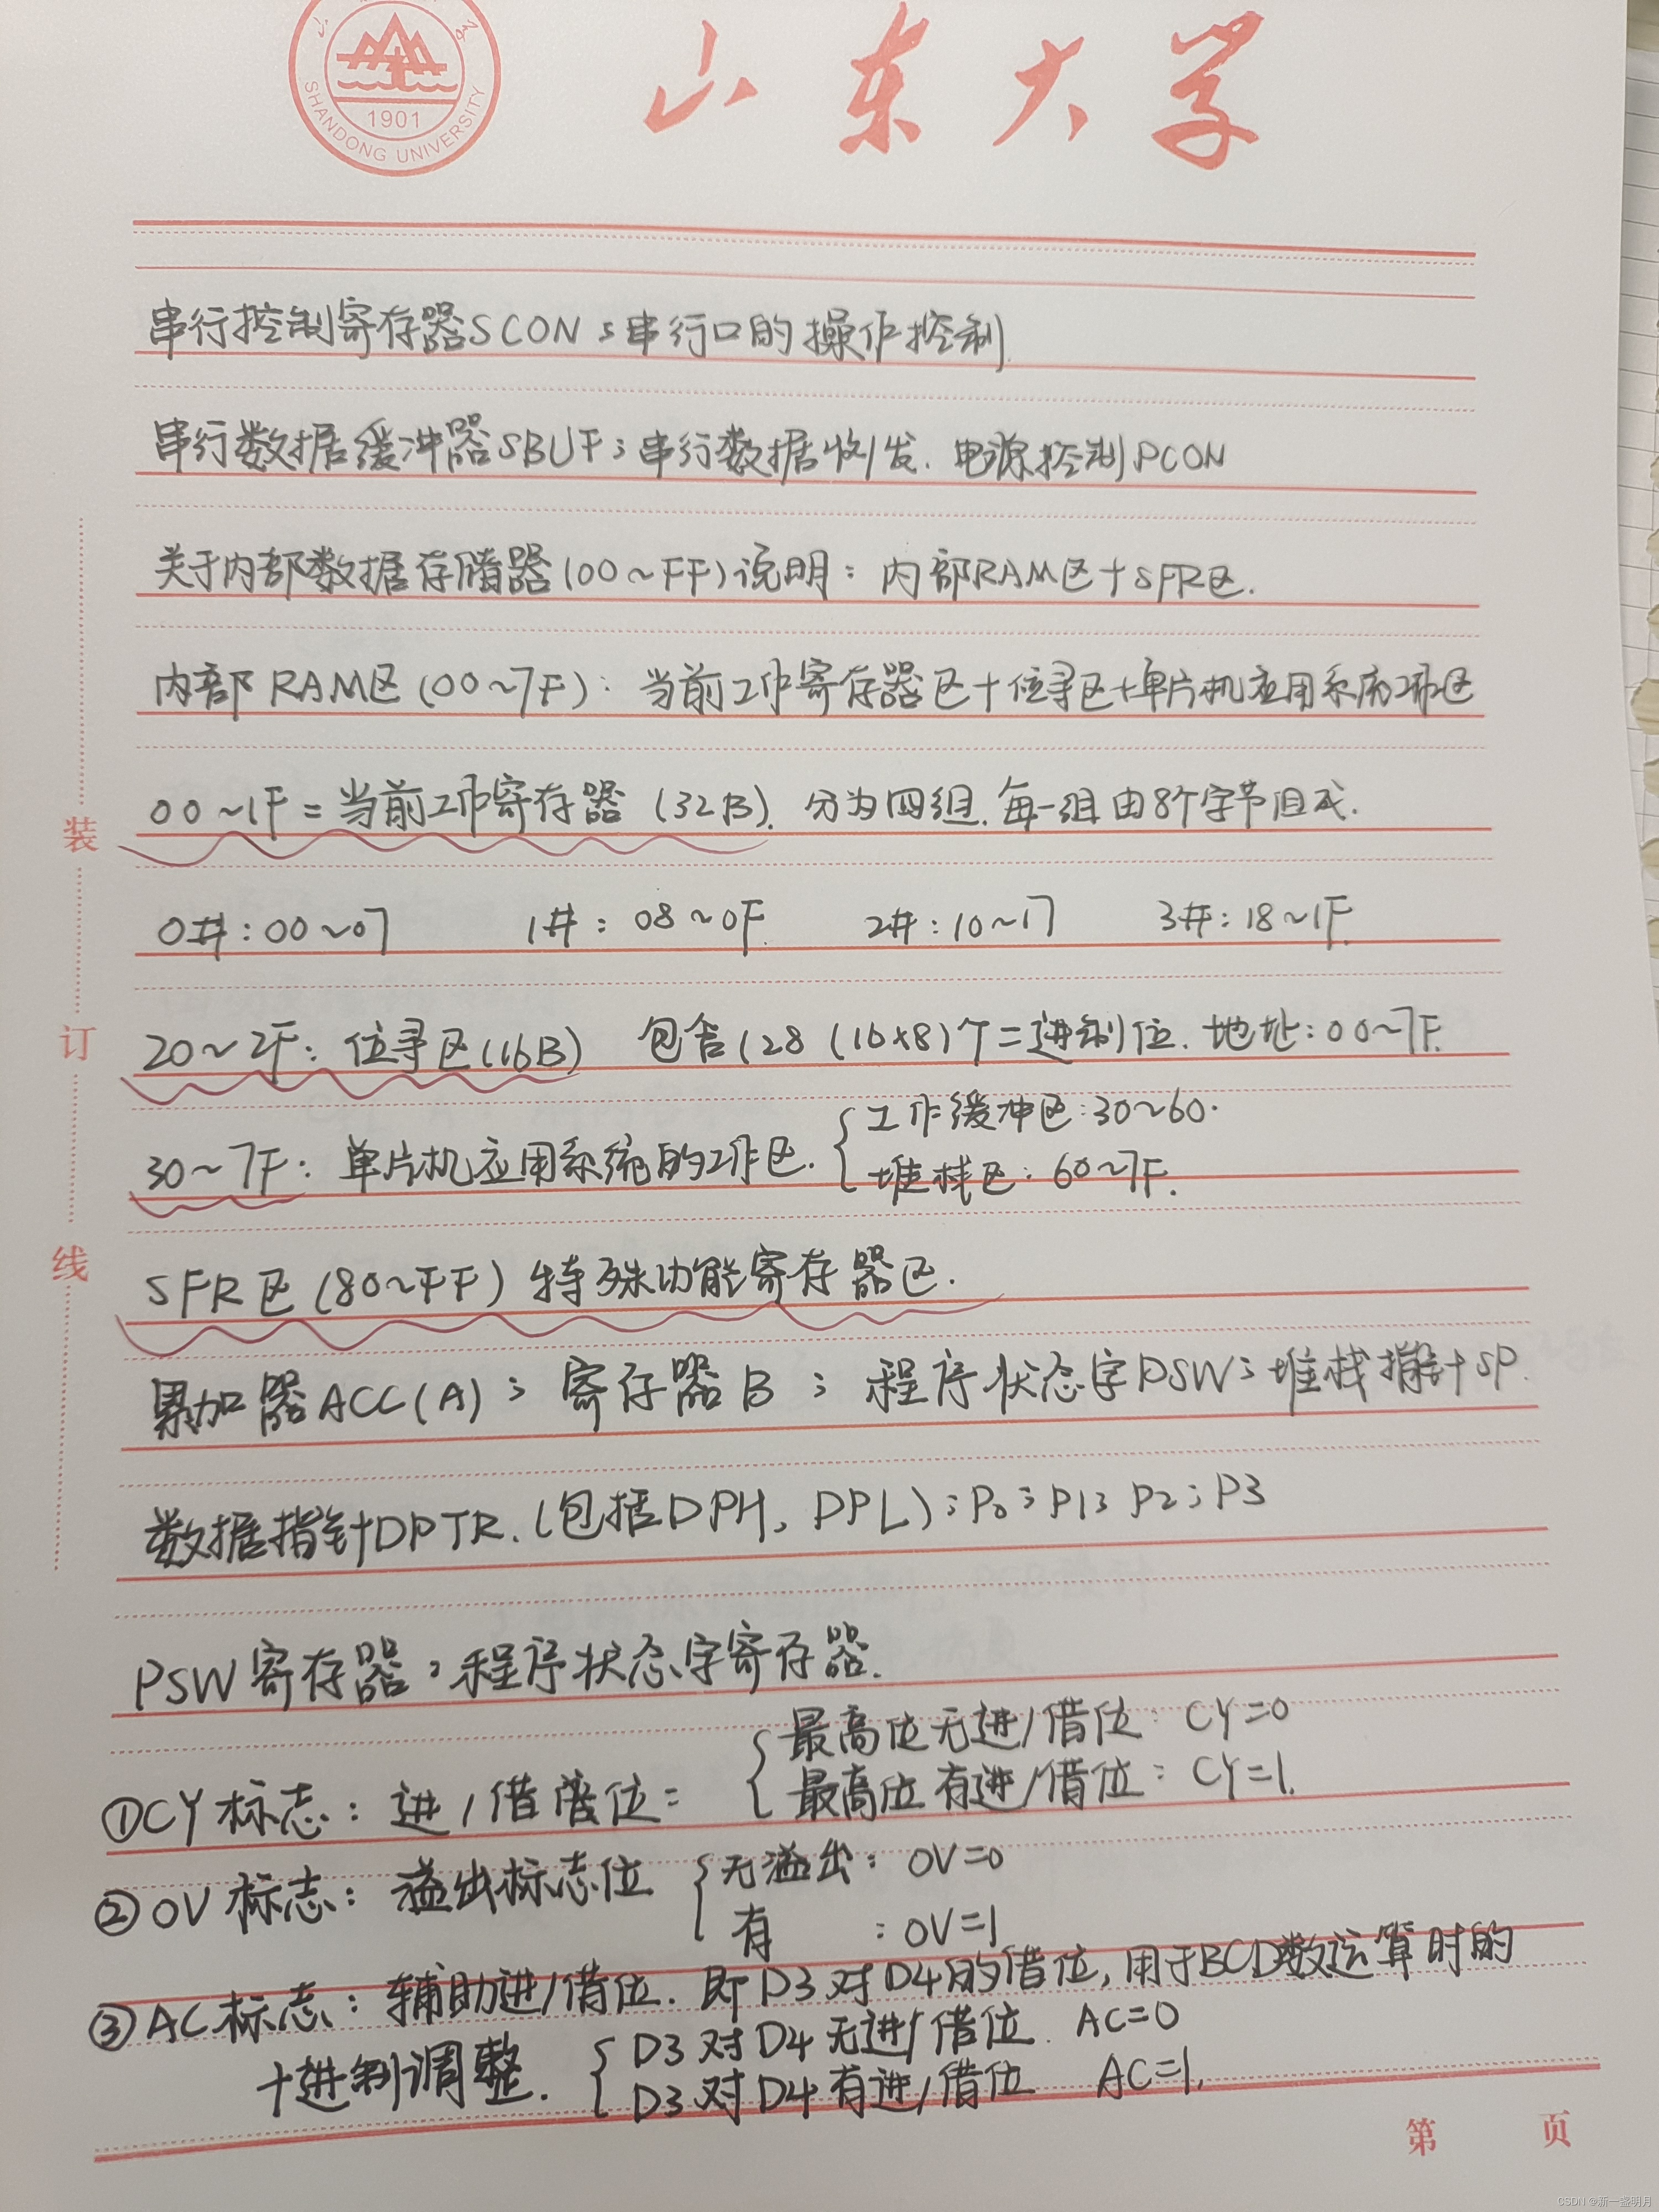 SHANDONG UNIVERSITY
1901
山东大学
串行控制寄存器SCON:串行口的操作控制
串行数据缓冲器SBUF;串行数据收/发. 电源控制PCON
关于内部数据存储器(00~FF)说明: 内部RAM区+SFR区.
内部RAM区(00~7F): 当前工作寄存器区+位寻区+单片机应用系统工作区
00~1F=当前工作寄存器 (32B). 分为四组. 每一组由8个字节组成.
0#:00~07 1#: 08~0F. 2#:10~17 3#:18~1F.
20~2F: 位寻区(16B) 包含128 (16x8)个二进制位. 地址:00~7F.
30~7F: 单片机应用系统的工作区.
工作缓冲区:30~60.
堆栈区: 60~7F.
SFR区(80~FF)特殊功能寄存器区.
累加器ACC(A); 寄存器B; 程序状态字PSW;堆栈指针SP.
数据指针DPTR.(包括DPH、DPL);P0;P1;P2;P3
PSW寄存器:程序状态字寄存器.
①CY标志: 进/借位:
最高位无进/借位: CY=0
最高位有进/借位: CY=1.
②OV标志: 溢出标志位
无溢出: OV=0
有 :OV=1
③AC标志: 辅助进/借位. 即D3对D4的借位,用于BCD数运算时的
十进制调整.
D3对D4无进/借位. AC=0
D3对D4有进/借位 AC=1.
装
订
线
第 页
CSDN @新一盏明月